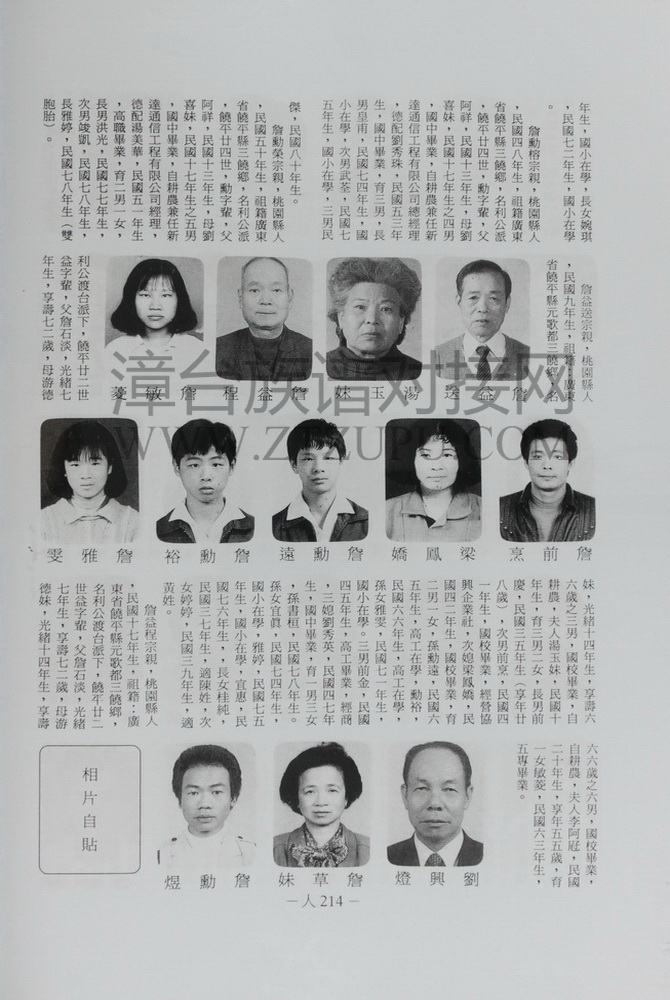 年生，國小在學，長女婉琪
，民國七二年生，國小在學
。
詹勳榕宗親，桃園縣人
，民國四八年生，祖籍廣東
省饒平縣三饒鄉，名利公派
，饒平廿四世，勳字輩，父
阿祥，民國十三年生，母劉
喜妹，民國十七年生之四男
，國中畢業，自耕農兼任新
達通信工程有限公司總經理
，德配劉秀珠，民國五三年
生，國中畢業，育三男，長
男皇甫，民國七四年生，國
小在學，次男武荃，民國七
五年生，國小在學，三男民
傑，民國八十年生。
詹勳榮宗親，桃園縣人
，民國五十年生，祖籍廣東
省饒平縣三饒鄉，名利公派
，饒平廿四世，勳字輩，父
阿祥，民國十三年生，母劉
喜妹，民國十七年生之五男
，國中畢業，自耕農兼任新
達通信工程有限公司經理，
德配湯美華，民國五一年生
，高職畢業，育二男一女，
長男洪光，民國七七年生，
次男竣凱，民國七八年生，
長雅婷，民國七八年生（雙
胞胎）。
詹益送宗親，桃園縣人
，民國九年生，祖籍：廣東
省饒平縣元歌都三饒鄉，名
詹益送
湯玉妹
詹益程
詹敏菱
利公渡台派下，饒平廿二世
益字輩，父詹石淡，光緒七
年生，享壽七二歲，母游德
詹前烹
梁鳳嬌
詹勳遠
詹勳裕
詹雅雯
妹，光緒十四年生，享壽六
六歲之三男，國校畢業，自
耕農，夫人湯玉妹，民國十
年生，育三男二女，長男前
慶，民國三五年生（享年廿
八歲），次男前烹，民國四
一年生，國校畢業，經營協
興企業社，次媳梁鳳嬌，民
國四二年生，國校畢業，育
二男一女，孫勳遠，民國六
五年生，高工在學，勳裕，
民國六六年生，高工在學，
孫女雅雯，民國七一年生，
國小在學。三男前金，民國
四五年生，高工畢業，經商
，三媳劉秀英，民國四七年
生，國中畢業，育一男三女
，孫書桓，民國七八年生。
孫女宜眞，民國七四年生，
國小在學，雅婷，民國七五
年生，國小在學，宜惠，民
國七六年生，，長女桂純，
民國三七年生，適陳姓，次
女婷婷，民國三九年生，適
黃姓。
詹益程宗親，桃園縣人
，民國十七年生，祖籍：廣
東省饒平縣元歌都三饒鄉，
名利公渡台派下，饒平廿二
世益字輩，父詹石淡，光緒
七年生，享壽七二歲，母游
德妹，光緒十四年生，享壽
六六歲之六男，國校畢業，
自耕農，夫人李阿冠，民國
二十年生，享年五五歲，育
一女敏菱，民國六三年生，
五專畢業。
劉興燈
詹草妹
詹勳煜
相片自貼
－人214－
漳台族谱对接网
WWW.ZTZUPU.COM